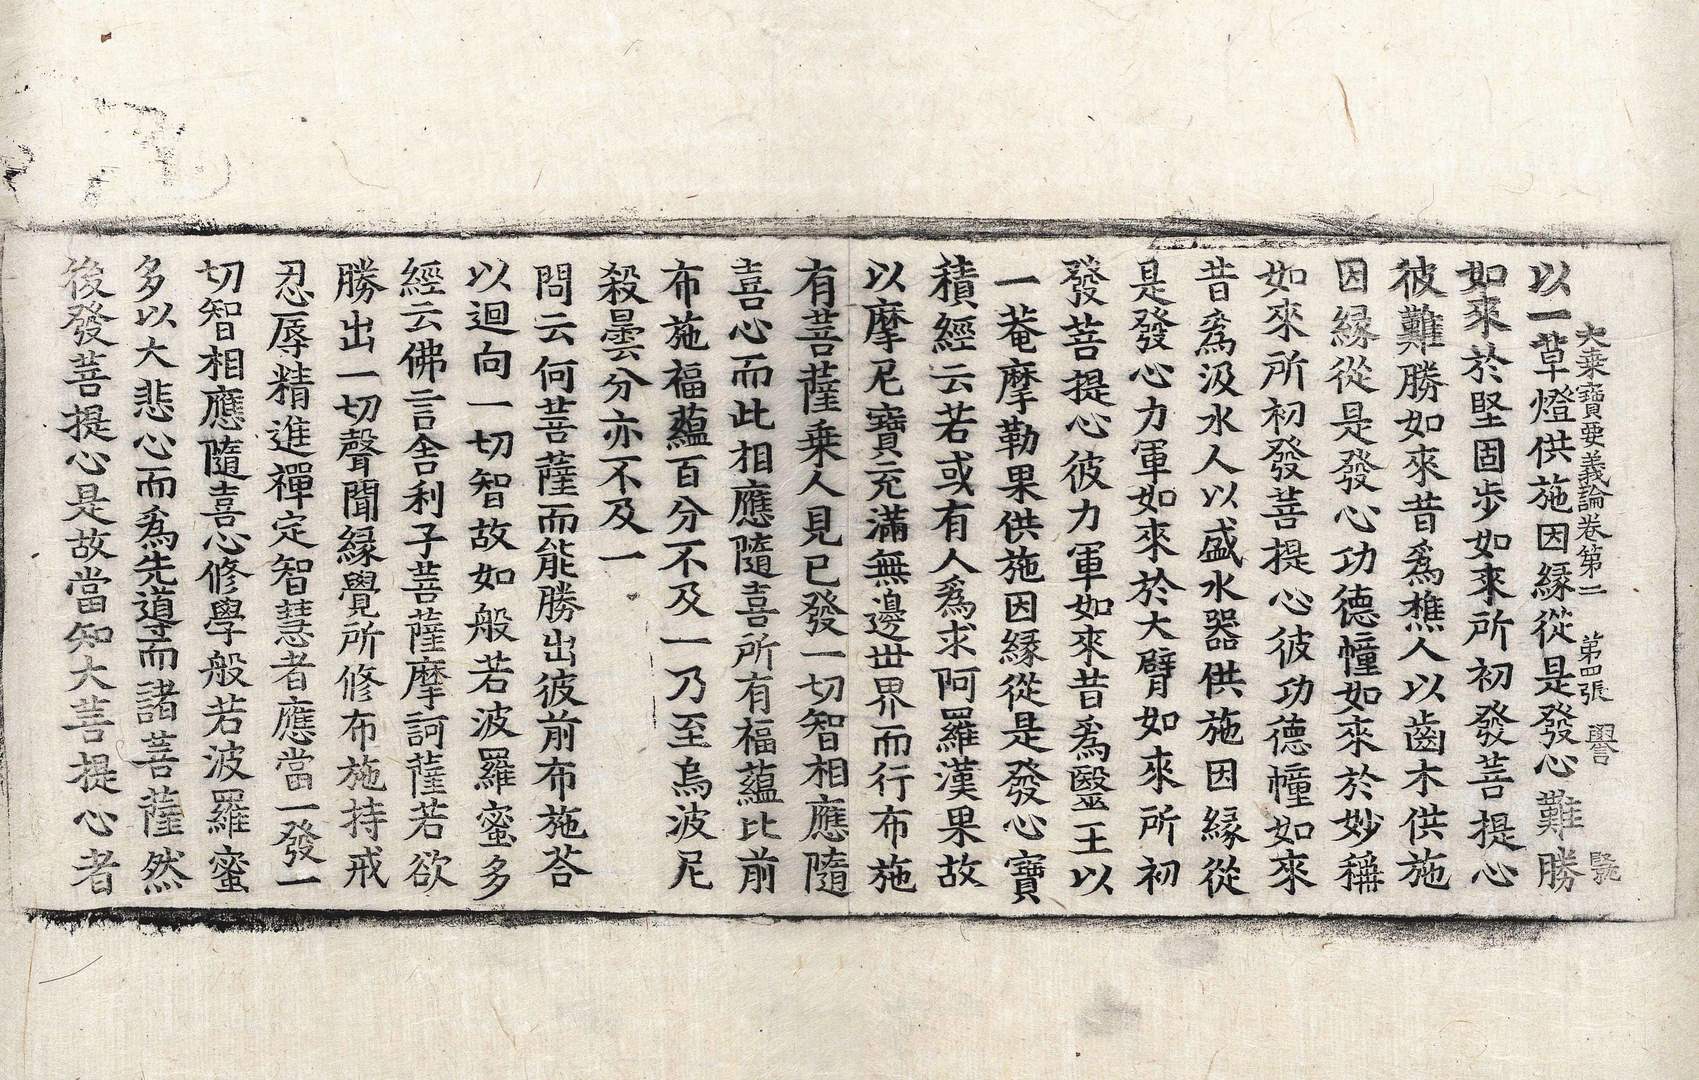 大乗寶要義論卷第二 第四張 譽
以一草燈供施因縁從是發心難勝
如來於堅固步如來所初發菩提心
彼難勝如來昔爲樵人以齒木供施
因縁從是發心功德幢如來於妙稱
如來所初發菩提心彼功德幢如來
昔爲汲水人以盛水器供施因縁從
是發心力軍如來於大臂如來所初
發菩提心彼力軍如來昔爲毉王以
一菴摩勒果供施因縁從是發心寶
積經云若或有人爲求阿羅漢果故
以摩尼寶充滿無邊世界而行布施
有菩薩乗人見已發一切智相應隨
喜心而此相應隨喜所有福蘊比前
布施福蘊百分不及一乃至烏波尼
殺曇分亦不及一
問云何菩薩而能勝出彼前布施荅
以迴向一切智故如般若波羅蜜多
經云佛言舎利子菩薩摩訶薩若欲
勝出一切聲聞縁覺所修布施持戒
忍辱精進禪定智慧者應當一發一
切智相應隨喜心修學般若波羅蜜
多以大悲心而爲先導而諸菩薩然
後發菩提心是故當知大菩提心者